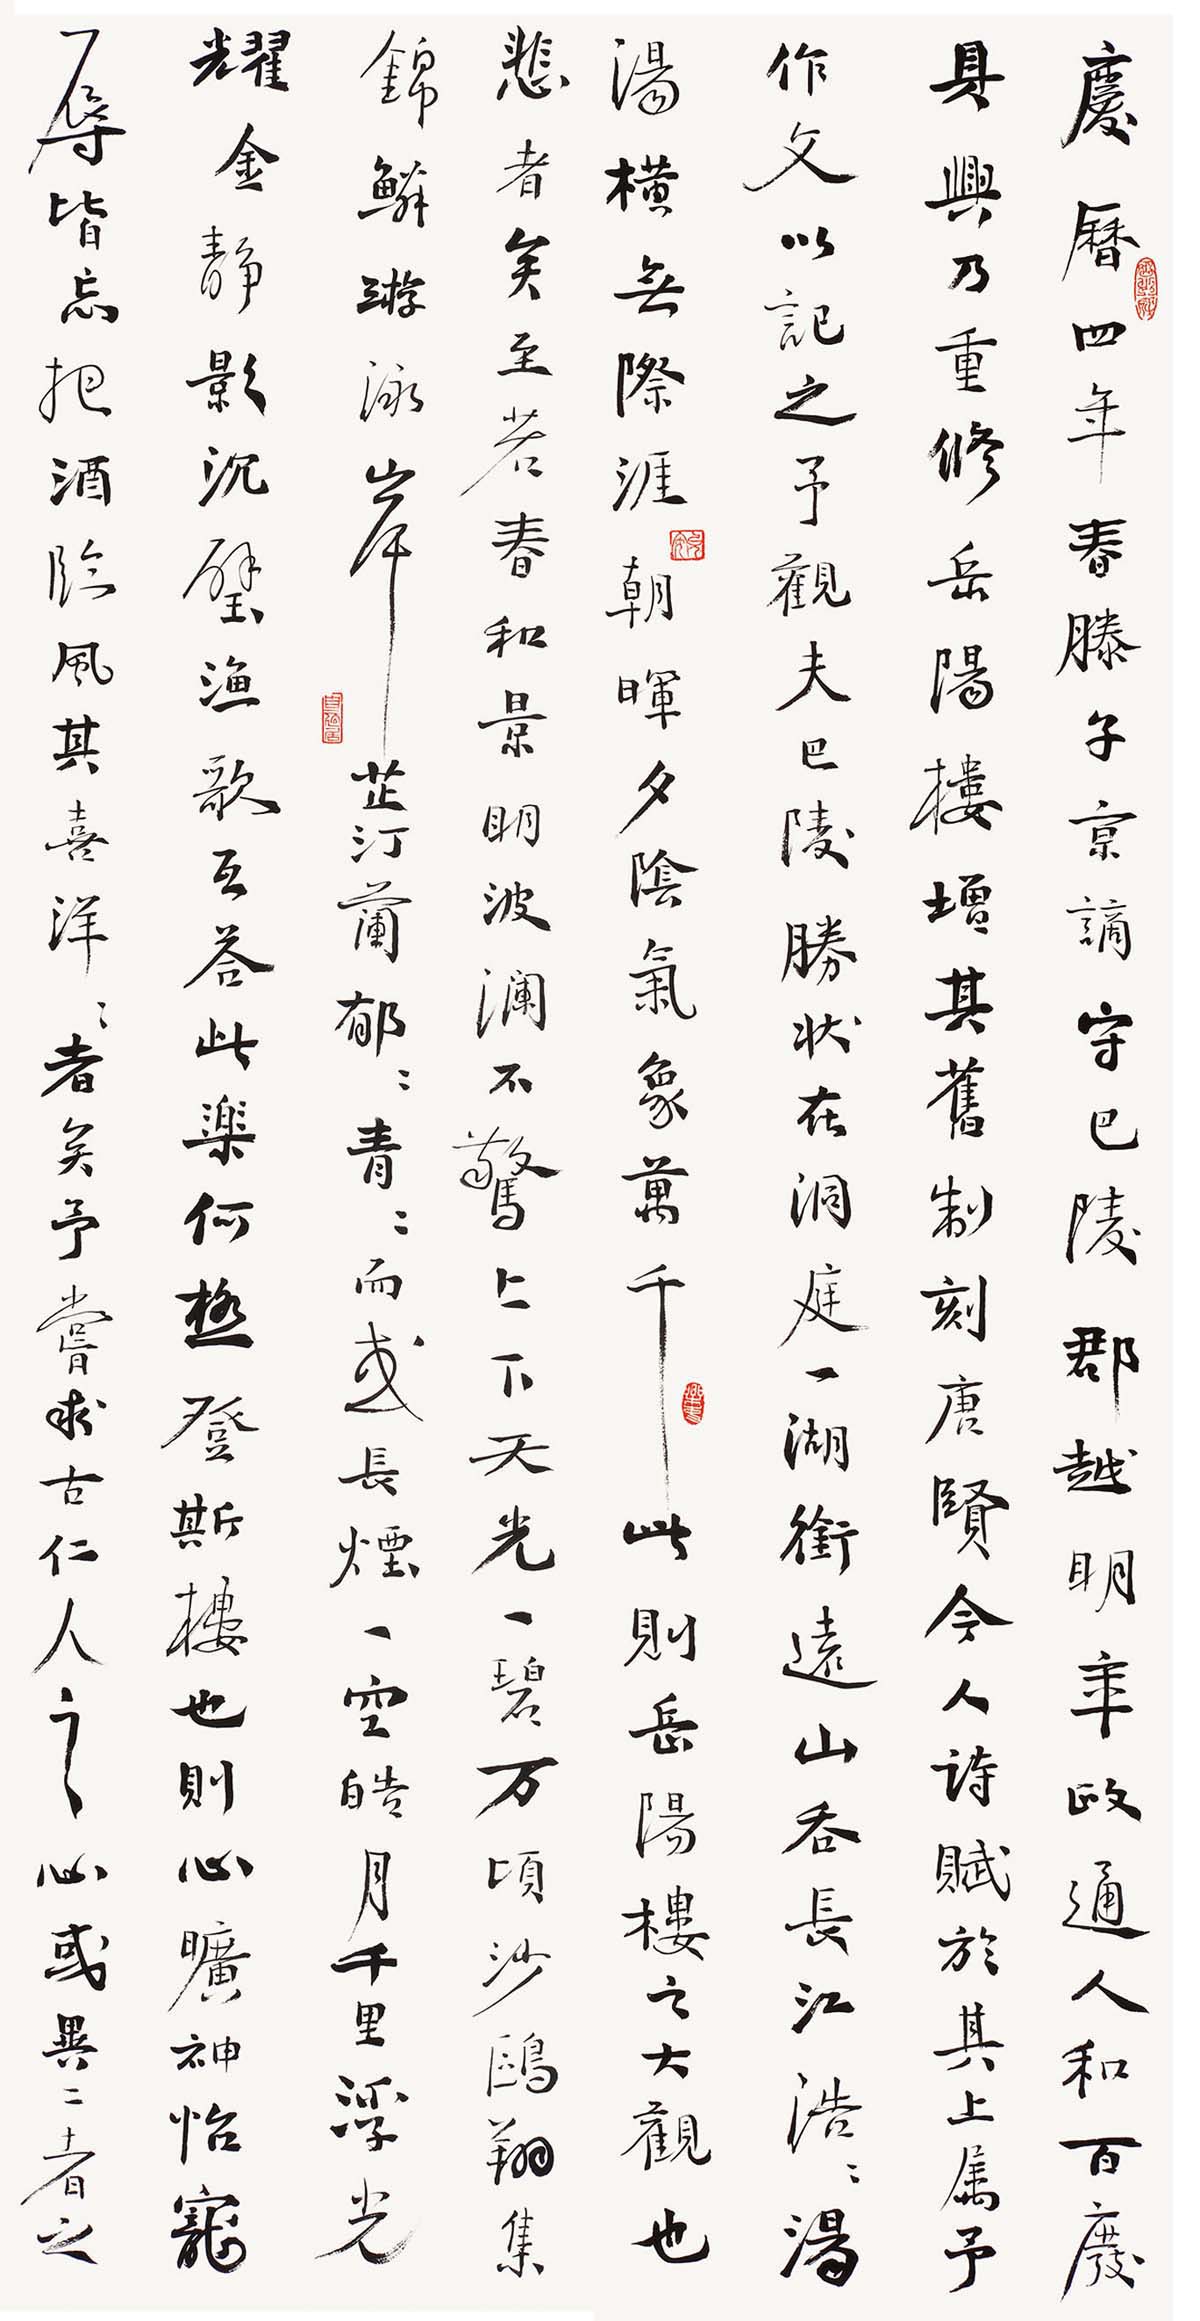 慶曆四年春滕子京謫守巴陵郡越明年政通人和百廢
具興乃重修岳陽樓增其舊制刻唐賢今人詩賦於其上属予
作文以記之予觀夫巴陵勝状在洞庭一湖銜遠山吞長江浩〻湯
湯橫無際涯朝暉夕陰氣象萬千此則岳陽樓之大觀也
悲者矣至若春和景明波澜不驚上下天光一碧万頃沙鷗翔集
錦鱗游泳岸芷汀蘭郁〻青〻而或長煙一空皓月千里浮光
耀金静影沉璧漁歌互答此楽何極登斯樓也則心曠神怡寵
辱皆忘把酒临風其喜洋〻者矣予嘗求古仁人之心或異二者之